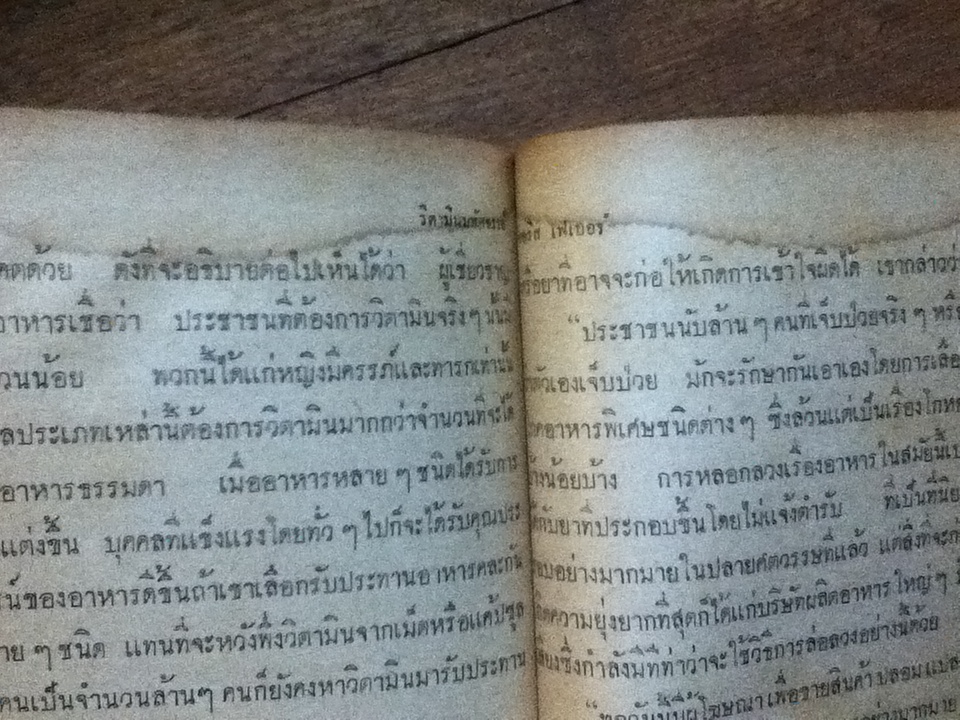 คตด้วย ดังที่จะอธิบายต่อไปให้เห็นได้ว่า
อาหารเชื่อว่า ประชาชนที่ต้องการวิตามินจริง ๆ นั้น
วนน้อย พวกนี้ได้แก่หญิงมีครรภ์และทารกเท่านั้น
ลประเภทเหล่านี้ต้องการวิตามินมากกว่าจำนวนที่จะได้
อาหารธรรมดา เมื่ออาหารหลาย ๆ ชนิดได้รับการ
แต่งขึ้น บุคคลที่แข็งแรงโดยทั่ว ๆ ไปก็จะได้รับคุณประ
น์ของอาหารดีขึ้นถ้าเขาเลือกรับประทานอาหารคละกัน
าย ๆ ชนิด แทนที่จะหวังพึ่งวิตามินจากเม็ดหรือแค้ปซูล
คนเป็นจำนวนล้านๆ คนก็ยังคงหาวิตามินมารับประทาน
ไฟเออร์
ที่อาจจะก่อให้เกิดการเข้าใจผิดได้ เขากล่าวว่า
“ประชาชนนับล้าน ๆ คนที่เจ็บป่วยจริง ๆ หรือ
ตัวเองเจ็บป่วย มักจะรักษากันเอาเองโดยการเลือ
อาหารพิเศษชนิดต่าง ๆ ซึ่งล้วนแต่เป็นเรื่องโกห
น้อยบ้าง การหลอกลวงเรื่องอาหารในสมัยนี้เป
กับยาที่ประกอบขึ้นโดยไม่แจ้งตำรับ ที่เป็นที่นิย
อย่างมากมายในปลายศตวรรษที่แล้ว แต่สิ่งที่จะก่
ความยุ่งยากที่สุดก็ได้แก่บริษัทผลิตอาหารใหญ่ ๆ
ซึ่งกำลังมีทีท่าว่าจะใช้วิธีการล่อลวงอย่างนี้ด้วย
“ทุกวันนี้มีผู้โฆษณาเพื่อขายสินค้าปลอมแปล